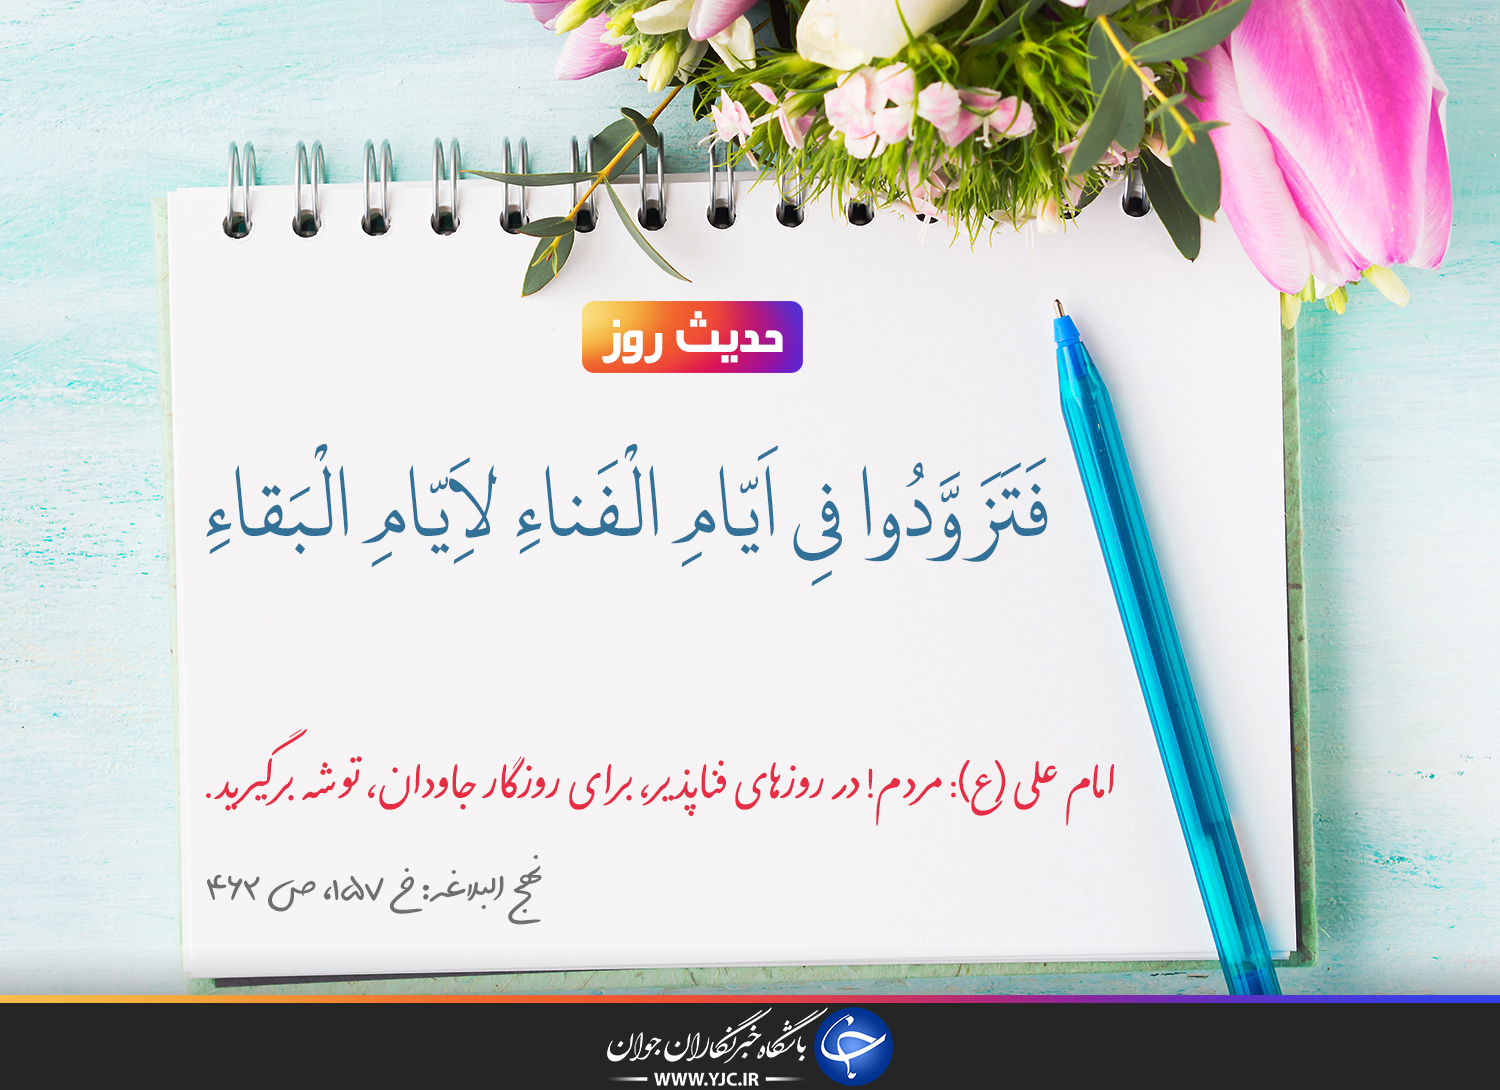 حدیث روز
فَتَزَوَّدُوا فِي اَيّامِ الْفَناءِ لاَِيّامِ الْبَقاءِ
امام علی (ع): مردم! در روزهای فناپذیر، برای روزگار جاودان، توشه برگیرید.
نهج البلاغه: خ ۱۵۷، ص ۴۶۲
باشگاه خبرنگاران جوان
WWW.YJC.IR